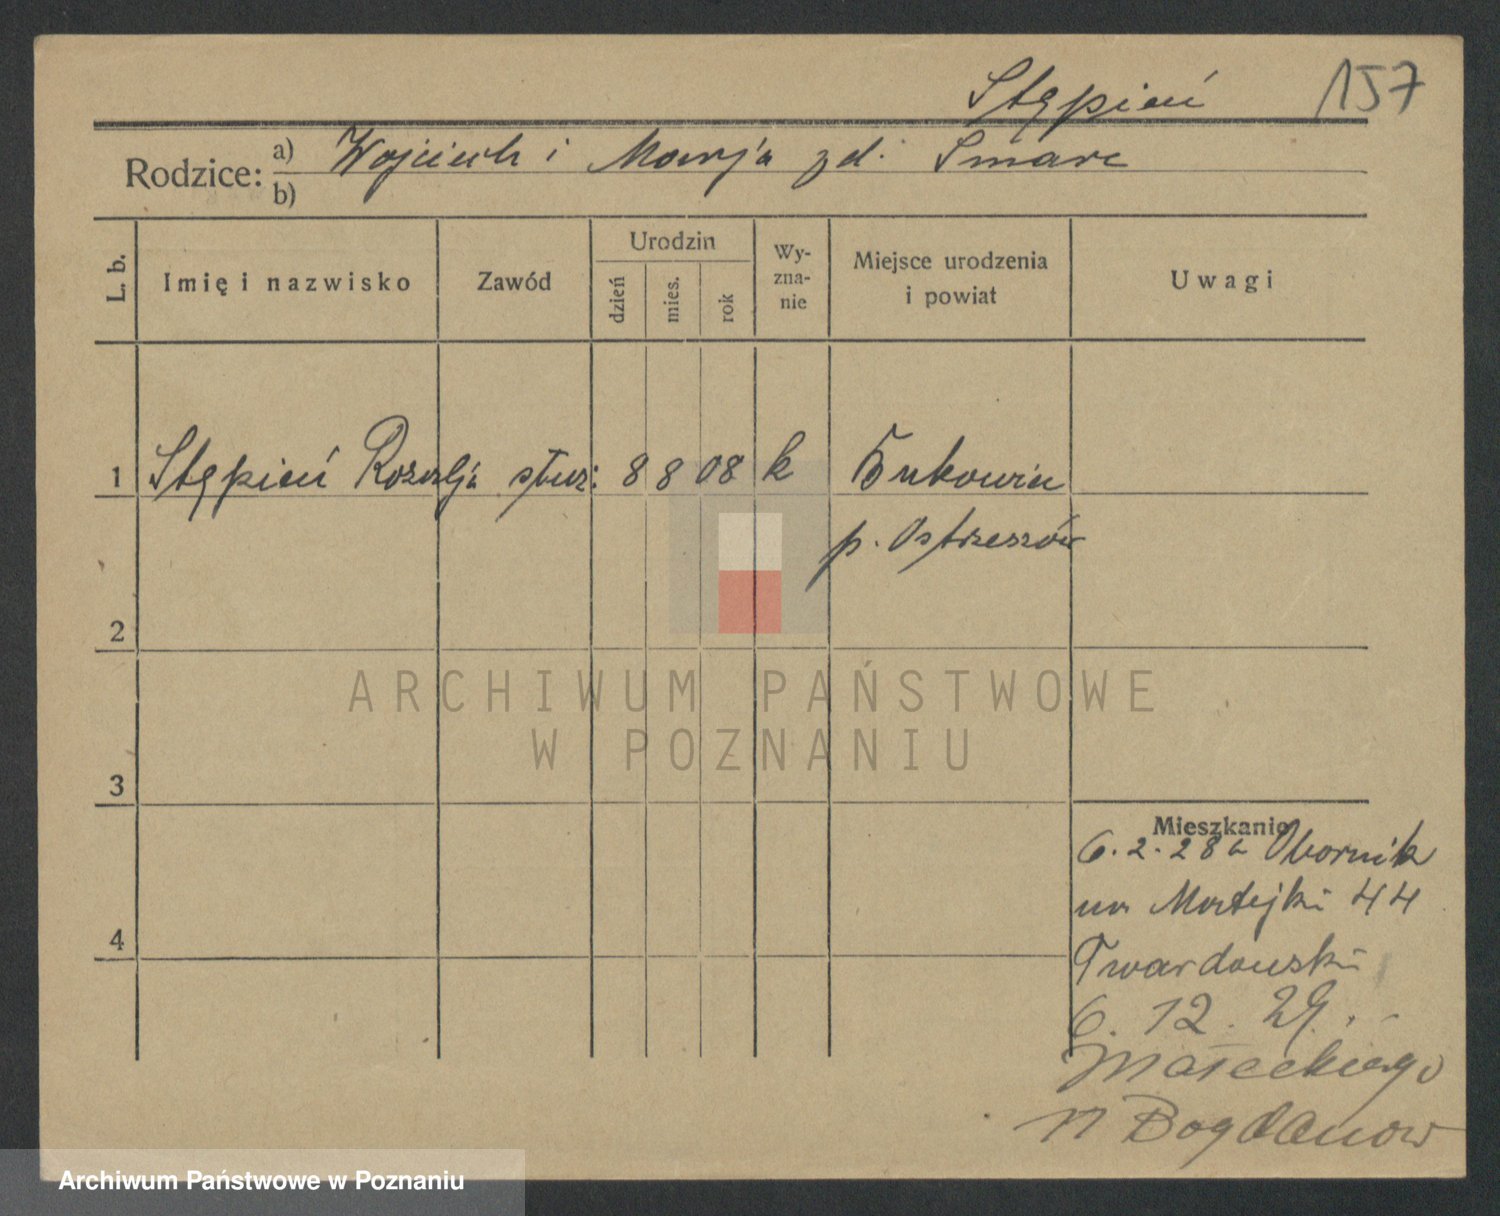 Stępień 157
Rodzice: a) Wojciech i Marja zd. Smarc
b)
L. b. Imię i nazwisko Zawód Urodzin dzień mies. rok Wyzna-nie Miejsce urodzenia i powiat Uwagi
1 Stępień Rozalja służ: 8 8 08 k Bukowin
p. Ostrzeszów
2
ARCHIWUM PAŃSTWOWE
W POZNANIU
3
Mieszkanie
6.2.28 Obornik
Matejki 44
Twardowski
6. 12. 29.
Małeckiego
Bogdanow
4
Archiwum Państwowe w Poznaniu